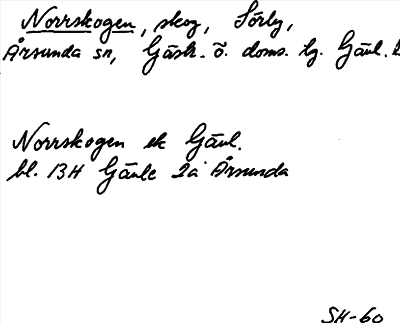 Norrskogen, skog, Sörby,
Årsunda sn, Gästr. ö. doms. tg. Gävl. l
Norrskogen ek Gävl.
bl. 13H Gävle 2a Årsunda
SH-60